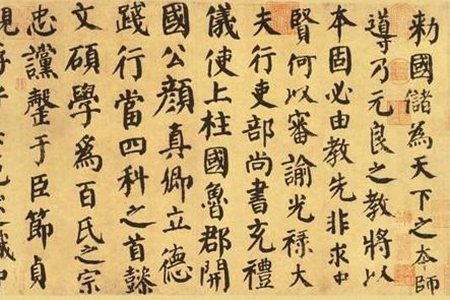 勅國儲為天下之本師
導乃元良之教將以
本固必由教先非求
賢何以審諭光祿大
夫行吏部尚書充禮
儀使上柱國魯郡開
國公顏真卿立德
踐行當四科之首懿
文碩學爲百氏之宗
忠讜罄于臣節貞